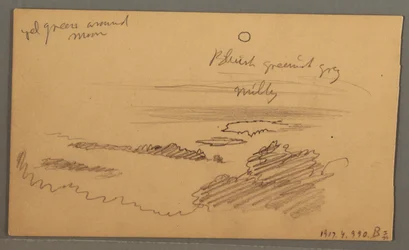 yel green around
moon
Bluish greenish grey
milky
1917.4.990.B